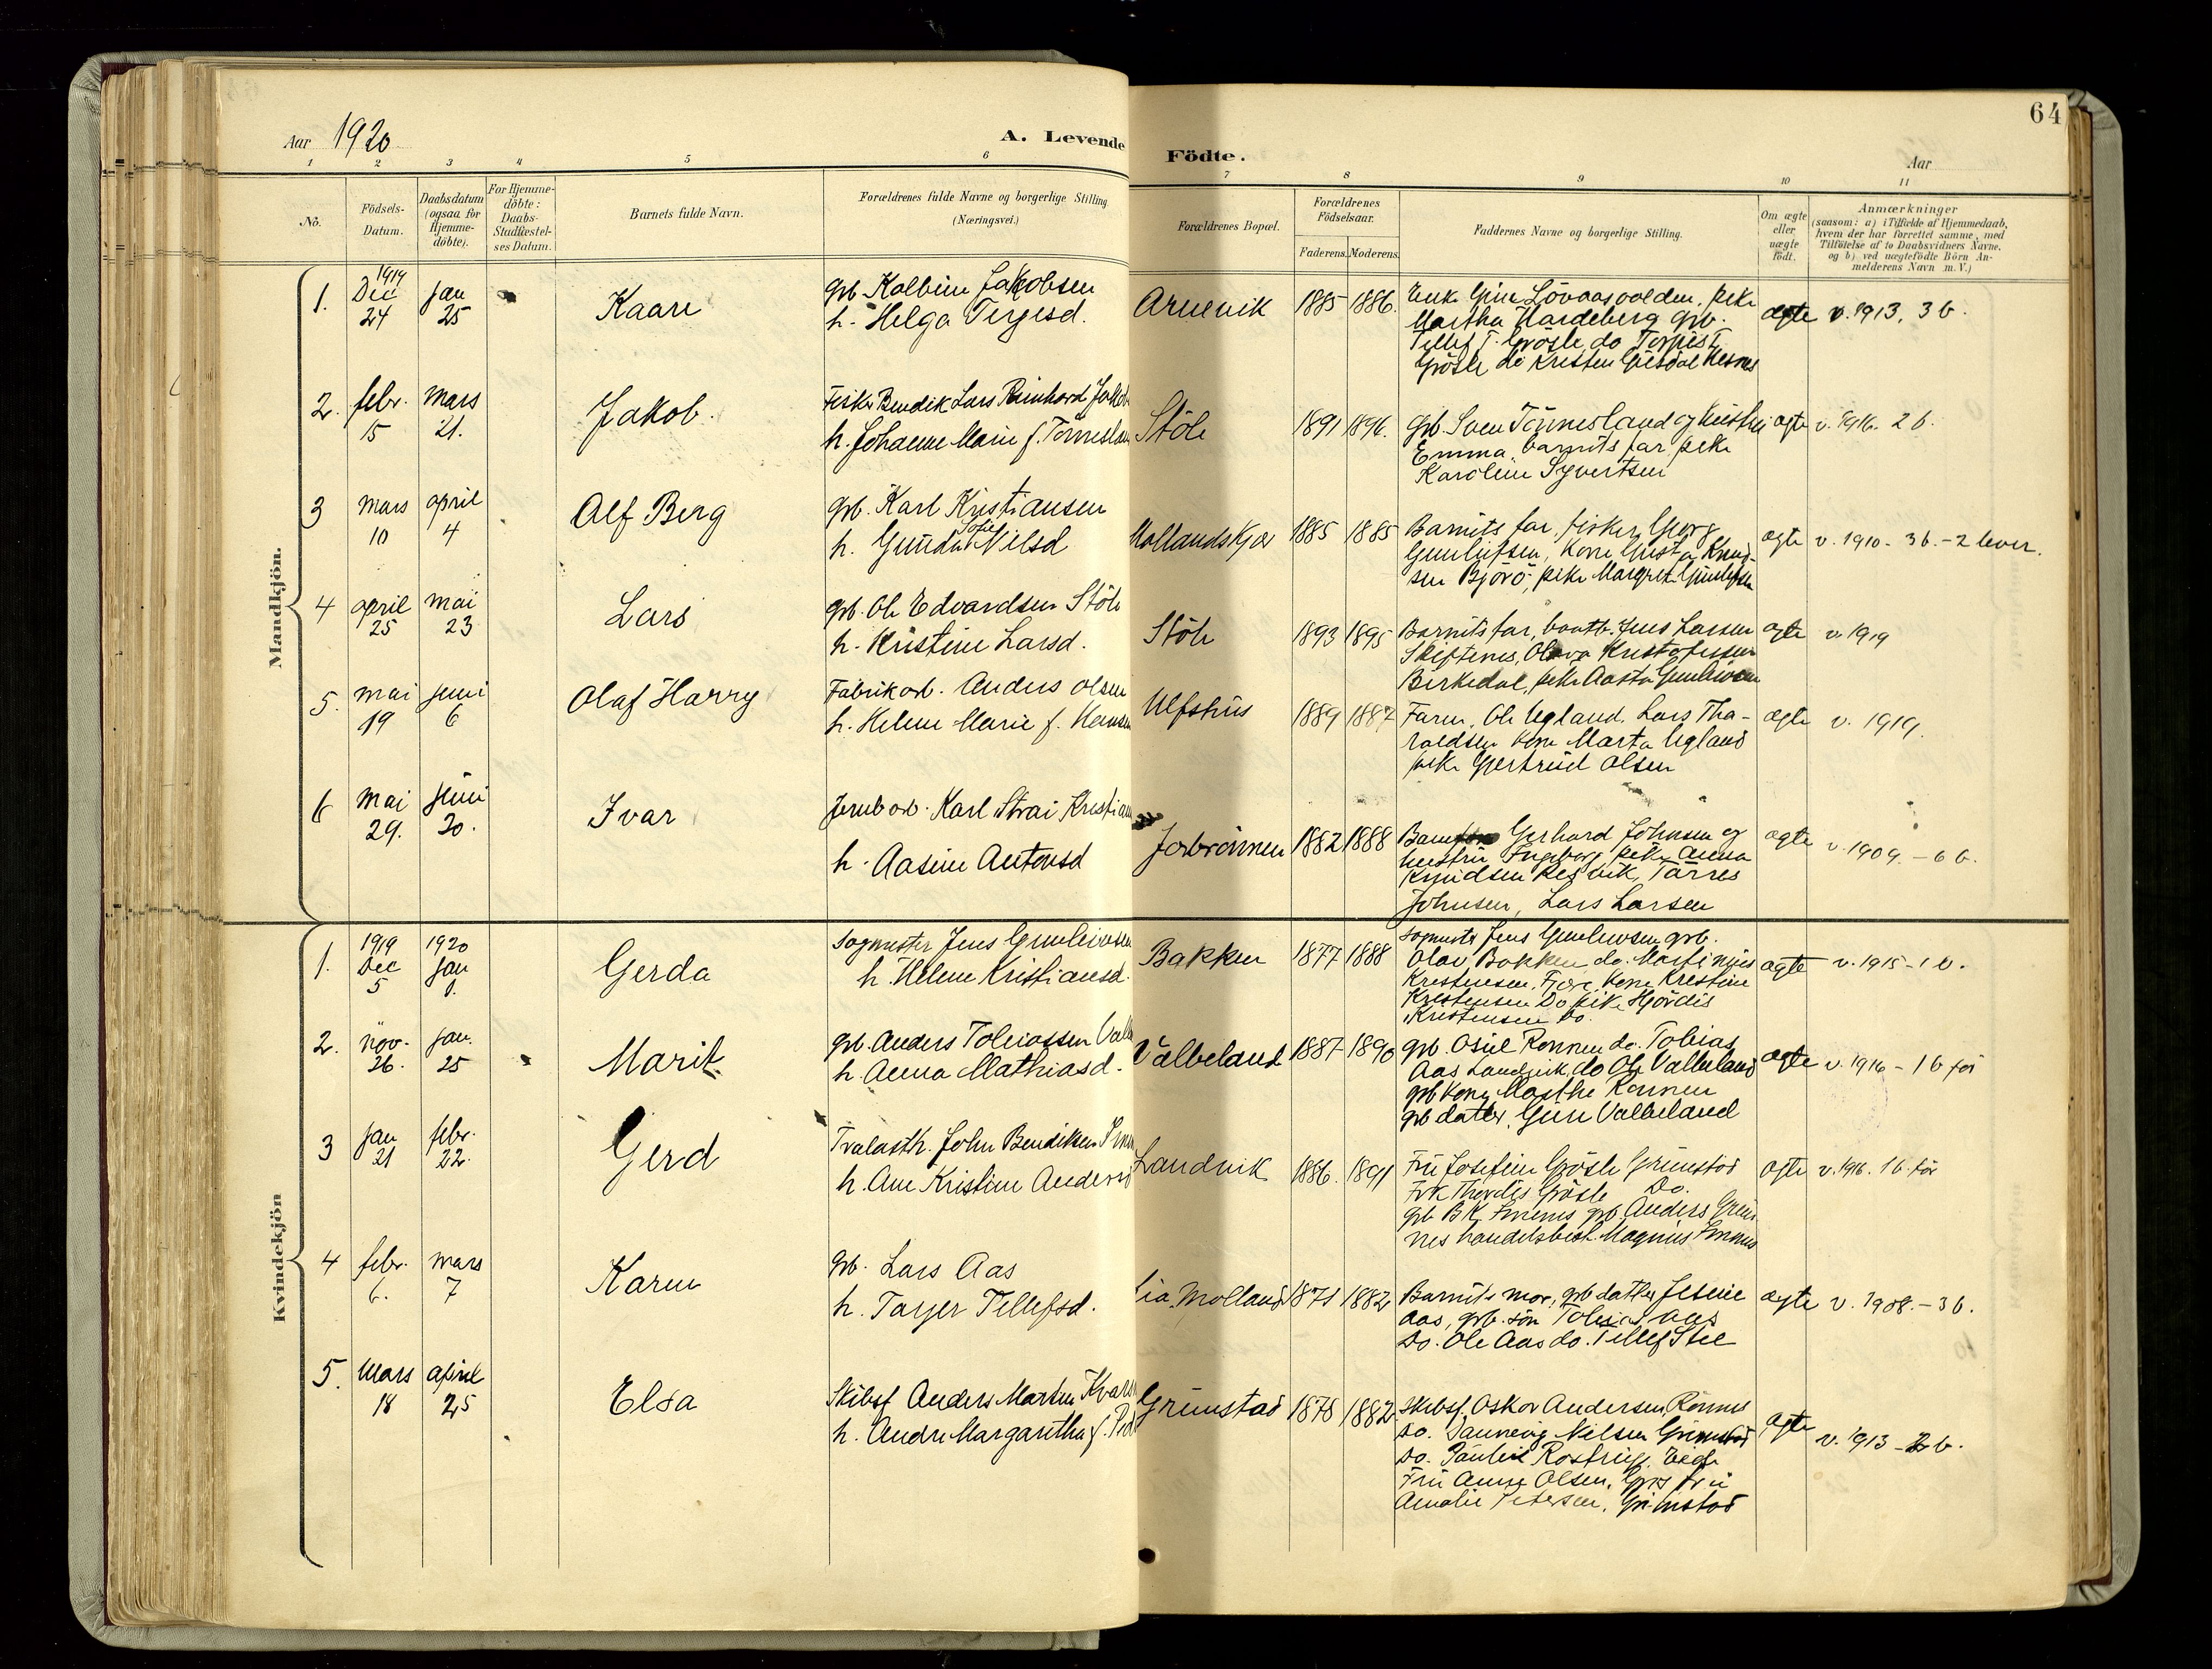 64
Aar 1920
A. Levende Födte.
Aar
1 2 3 4 5 6 7 8 9 10 11
No.
Födsels-Datum.
Daabsdatum (ogsaa for Hjemme-döbte).
For Hjemme-döbte: Daabs-Stadfæstel-ses Datum.
Barnets fulde Navn.
Forældrenes fulde Navne og borgerlige Stilling (Næringsvei.)
Forældrenes Bopæl.
Forældrenes Födselsaar.
Faderens. Moderens.
Faddernes Navne og borgerlige Stilling.
Om ægte eller uægte födt.
Anmærkninger
(saasom: a) i Tilfælde af Hjemmedaab, hvem der har forrettet samme, med Tilföielse af to Daabsvidners Navne, og b) ved uægtefödte Börn Anmelderens Navn m. V.)
Mandkjön.
1. 1919 Dec 24 Jan 25 Kaare
grb. Kolbein Jakobsen
h. Helga Terjesd.
Arnevik 1885 1886.
Martha Hardeberg grb.
Tellef T. Grösle do Terjes T.
ægte v. 1913, 3 b.
2. febr. 15 Mars 21. Jakob.
Fisker Bendik Lars Reinhard
h. Johanne Marie f.
Støle 1891 1896.
grb. Sven Tönnesland og hustru
Emma, barnets far, pike
Karoline Syvertsen
ægte v. 1916. 2 b.
3 Mars 10 april 4 Alf Berg
grb. Karl Kristiansen
h. Gunda Sofie Nilsd
Mollandskjær 1885 1885
Barnets far, fisker Georg
Gunlufsen, kone Gusta Knud-
sen Björö, pike Margret Gunlufsen
ægte v. 1910 - 3 b. - 2 lever.
4 april 25 Mai 23 Lars
grb. Ole Edvardsen Støle
h. Kristine Larsd.
Støle 1893 1895
Barnets far, baatb. Jens Larsen
Skiftenes, Olava Kristofersen
Birkedal, pike Aasta Gunleivsen
ægte v. 1919
5. Mai 19 Juni 6 Olaf Harry
Fabrikarb. Anders Olsen
h. Helene Marie f. Hansen
Ulfshus 1889 1887
Faren, Ole Ugland, Lars Tha-
raldsen kone Marta Ugland
pike Gjertrud Olsen
ægte v. 1919.
6 Mai 29. Juni 20. Ivar
Jernb.arb. Karl Strai
h. Aasine Antonsd
Jorbrönnen 1882 1888
Gerhard Johnsen og
hustru Ingeborg, pike Anna
Knudsen Resvik, Tarres
Johnsen, Lars Larsen
ægte v. 1909. - 6 b.
Kvindekjön
1. 1919 Dec 5 1920 Jan 1. Gerda
Sagmester Jens Gunleivsen
h. Helene Kristiansd.
Bakken 1877 1888
Sagmester Jens Gunleivsen grb.
Olav Bakken do. Martinius
Kristensen, Fjære, kone Kristine
Kristensen Do pike Hjördis
Kristensen Do.
ægte v. 1915 - 1 b.
2. nov. 26. Jan. 25 Marit
grb. Anders Tobiassen
h. Anna Mathiasd.
Valbeland 1887 1890
grb. Osuld Rønnen do. Tobias
Aas Landvik, do Ole Valbeland
grb kone Marthe Rønnen
grb datter, Guri Valbeland
ægte v. 1916 - 1 b før
3 Jan 21 febr. 22. Gerd
John Bendiksen
h. Ane Kristine
Landvik 1886. 1891
Fru Josefine Grösle Grimstad
Frk Thordis Grösle Do.
ægte v. 1916. 1 b. før
4 febr. 6. Mars 7 Karen
grb. Lars Aas
h. Tarjer Tellefsd.
Lia Molland 1871 1882
Barnets mor, grb datter Jesine
Aas, grb. sön Tobias Aas
Do. Ole Aas do. Tellef Stee
ægte v. 1908. - 3 b.
5. Mars 18 april 25 Elsa
Skibsf. Anders Martin
h. Andr. Margaretha f.
Grimstad 1878 1882
Skibsf. Oskar Andersen, Rönnes
Do. Dannevig Nilsen Grimstad
Do. Rostrup, Eide
Fru Anne Olsen, fru
Amalie Petersen, Grimstad
ægte v. 1913 - 2 b.